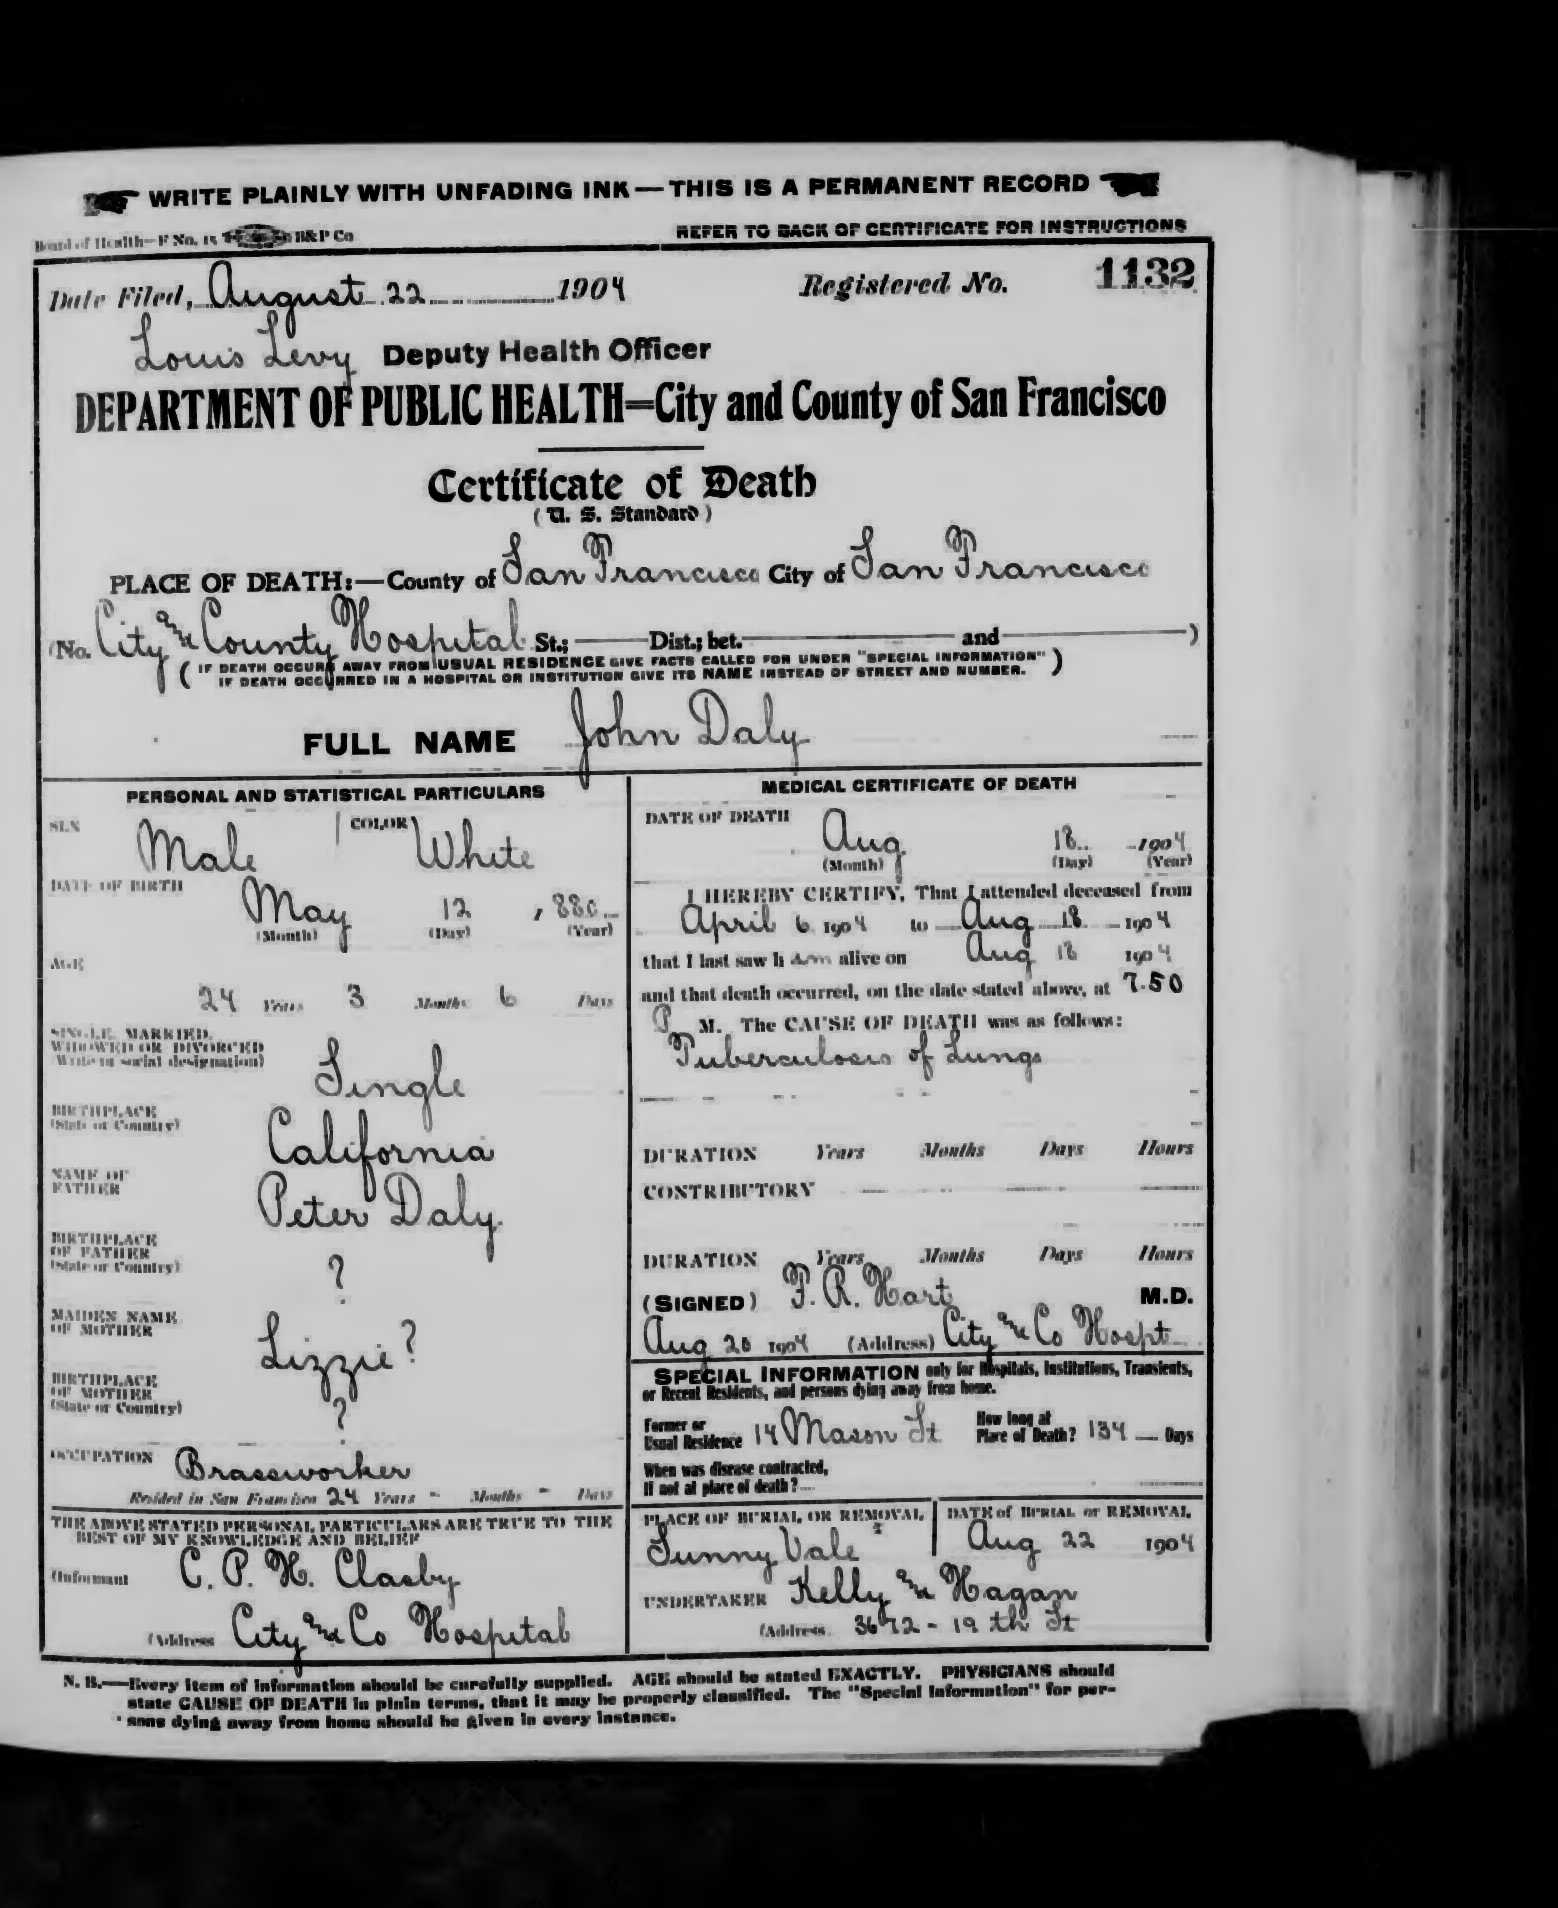 WRITE PLAINLY WITH UNFADING INK — THIS IS A PERMANENT RECORD
Board of Health—F No. 15 B&P Co
REFER TO BACK OF CERTIFICATE FOR INSTRUCTIONS
Date Filed, August 22 1904 Registered No. 1132
Louis Levy Deputy Health Officer
DEPARTMENT OF PUBLIC HEALTH=City and County of San Francisco
Certificate of Death
(U. S. Standard)
PLACE OF DEATH:—County of San Francisco City of San Francisco
(No. City and County Hospital St.; Dist.; bet. and )
( IF DEATH OCCURS AWAY FROM USUAL RESIDENCE GIVE FACTS CALLED FOR UNDER "SPECIAL INFORMATION" )
IF DEATH OCCURRED IN A HOSPITAL OR INSTITUTION GIVE ITS NAME INSTEAD OF STREET AND NUMBER.
FULL NAME John Daly
PERSONAL AND STATISTICAL PARTICULARS
SEX Male COLOR White
DATE OF BIRTH May 12 , 880
(Month) (Day) (Year)
AGE
24 Years 3 Months 6 Days
SINGLE, MARRIED,
WIDOWED OR DIVORCED
(Write in social designation) Single
BIRTHPLACE
(State or Country) California
NAME OF
FATHER Peter Daly
BIRTHPLACE
OF FATHER
(State or Country) ?
MAIDEN NAME
OF MOTHER Lizzie ?
BIRTHPLACE
OF MOTHER
(State or Country) ?
OCCUPATION Brassworker
Resided in San Francisco 24 Years - Months - Days
THE ABOVE STATED PERSONAL PARTICULARS ARE TRUE TO THE
BEST OF MY KNOWLEDGE AND BELIEF
(Informant C. P. H. Clasby
(Address City and Co Hospital
MEDICAL CERTIFICATE OF DEATH
DATE OF DEATH
Aug 18 1904
(Month) (Day) (Year)
I HEREBY CERTIFY, That I attended deceased from
April 6 1904 to Aug 18 1904
that I last saw h im alive on Aug 18 1904
and that death occurred, on the date stated above, at 7.50
P M. The CAUSE OF DEATH was as follows:
Tuberculosis of Lungs
DURATION Years Months Days Hours
CONTRIBUTORY
DURATION Years Months Days Hours
(SIGNED) F. R. Hart M.D.
Aug 20 1904 (Address) City and Co Hospt
SPECIAL INFORMATION only for Hospitals, Institutions, Transients,
or Recent Residents, and persons dying away from home.
Former or
Usual Residence 14 Mason St How long at
Place of Death? 134 Days
When was disease contracted,
If not at place of death?
PLACE OF BURIAL OR REMOVAL DATE of BURIAL or REMOVAL
Sunny Vale Aug 22 1904
UNDERTAKER Kelly and Hagan
(Address 3672 - 19 th St
N. B.—Every item of information should be carefully supplied. AGE should be stated EXACTLY. PHYSICIANS should
state CAUSE OF DEATH in plain terms, that it may be properly classified. The "Special Information" for per-
sons dying away from home should be given in every instance.